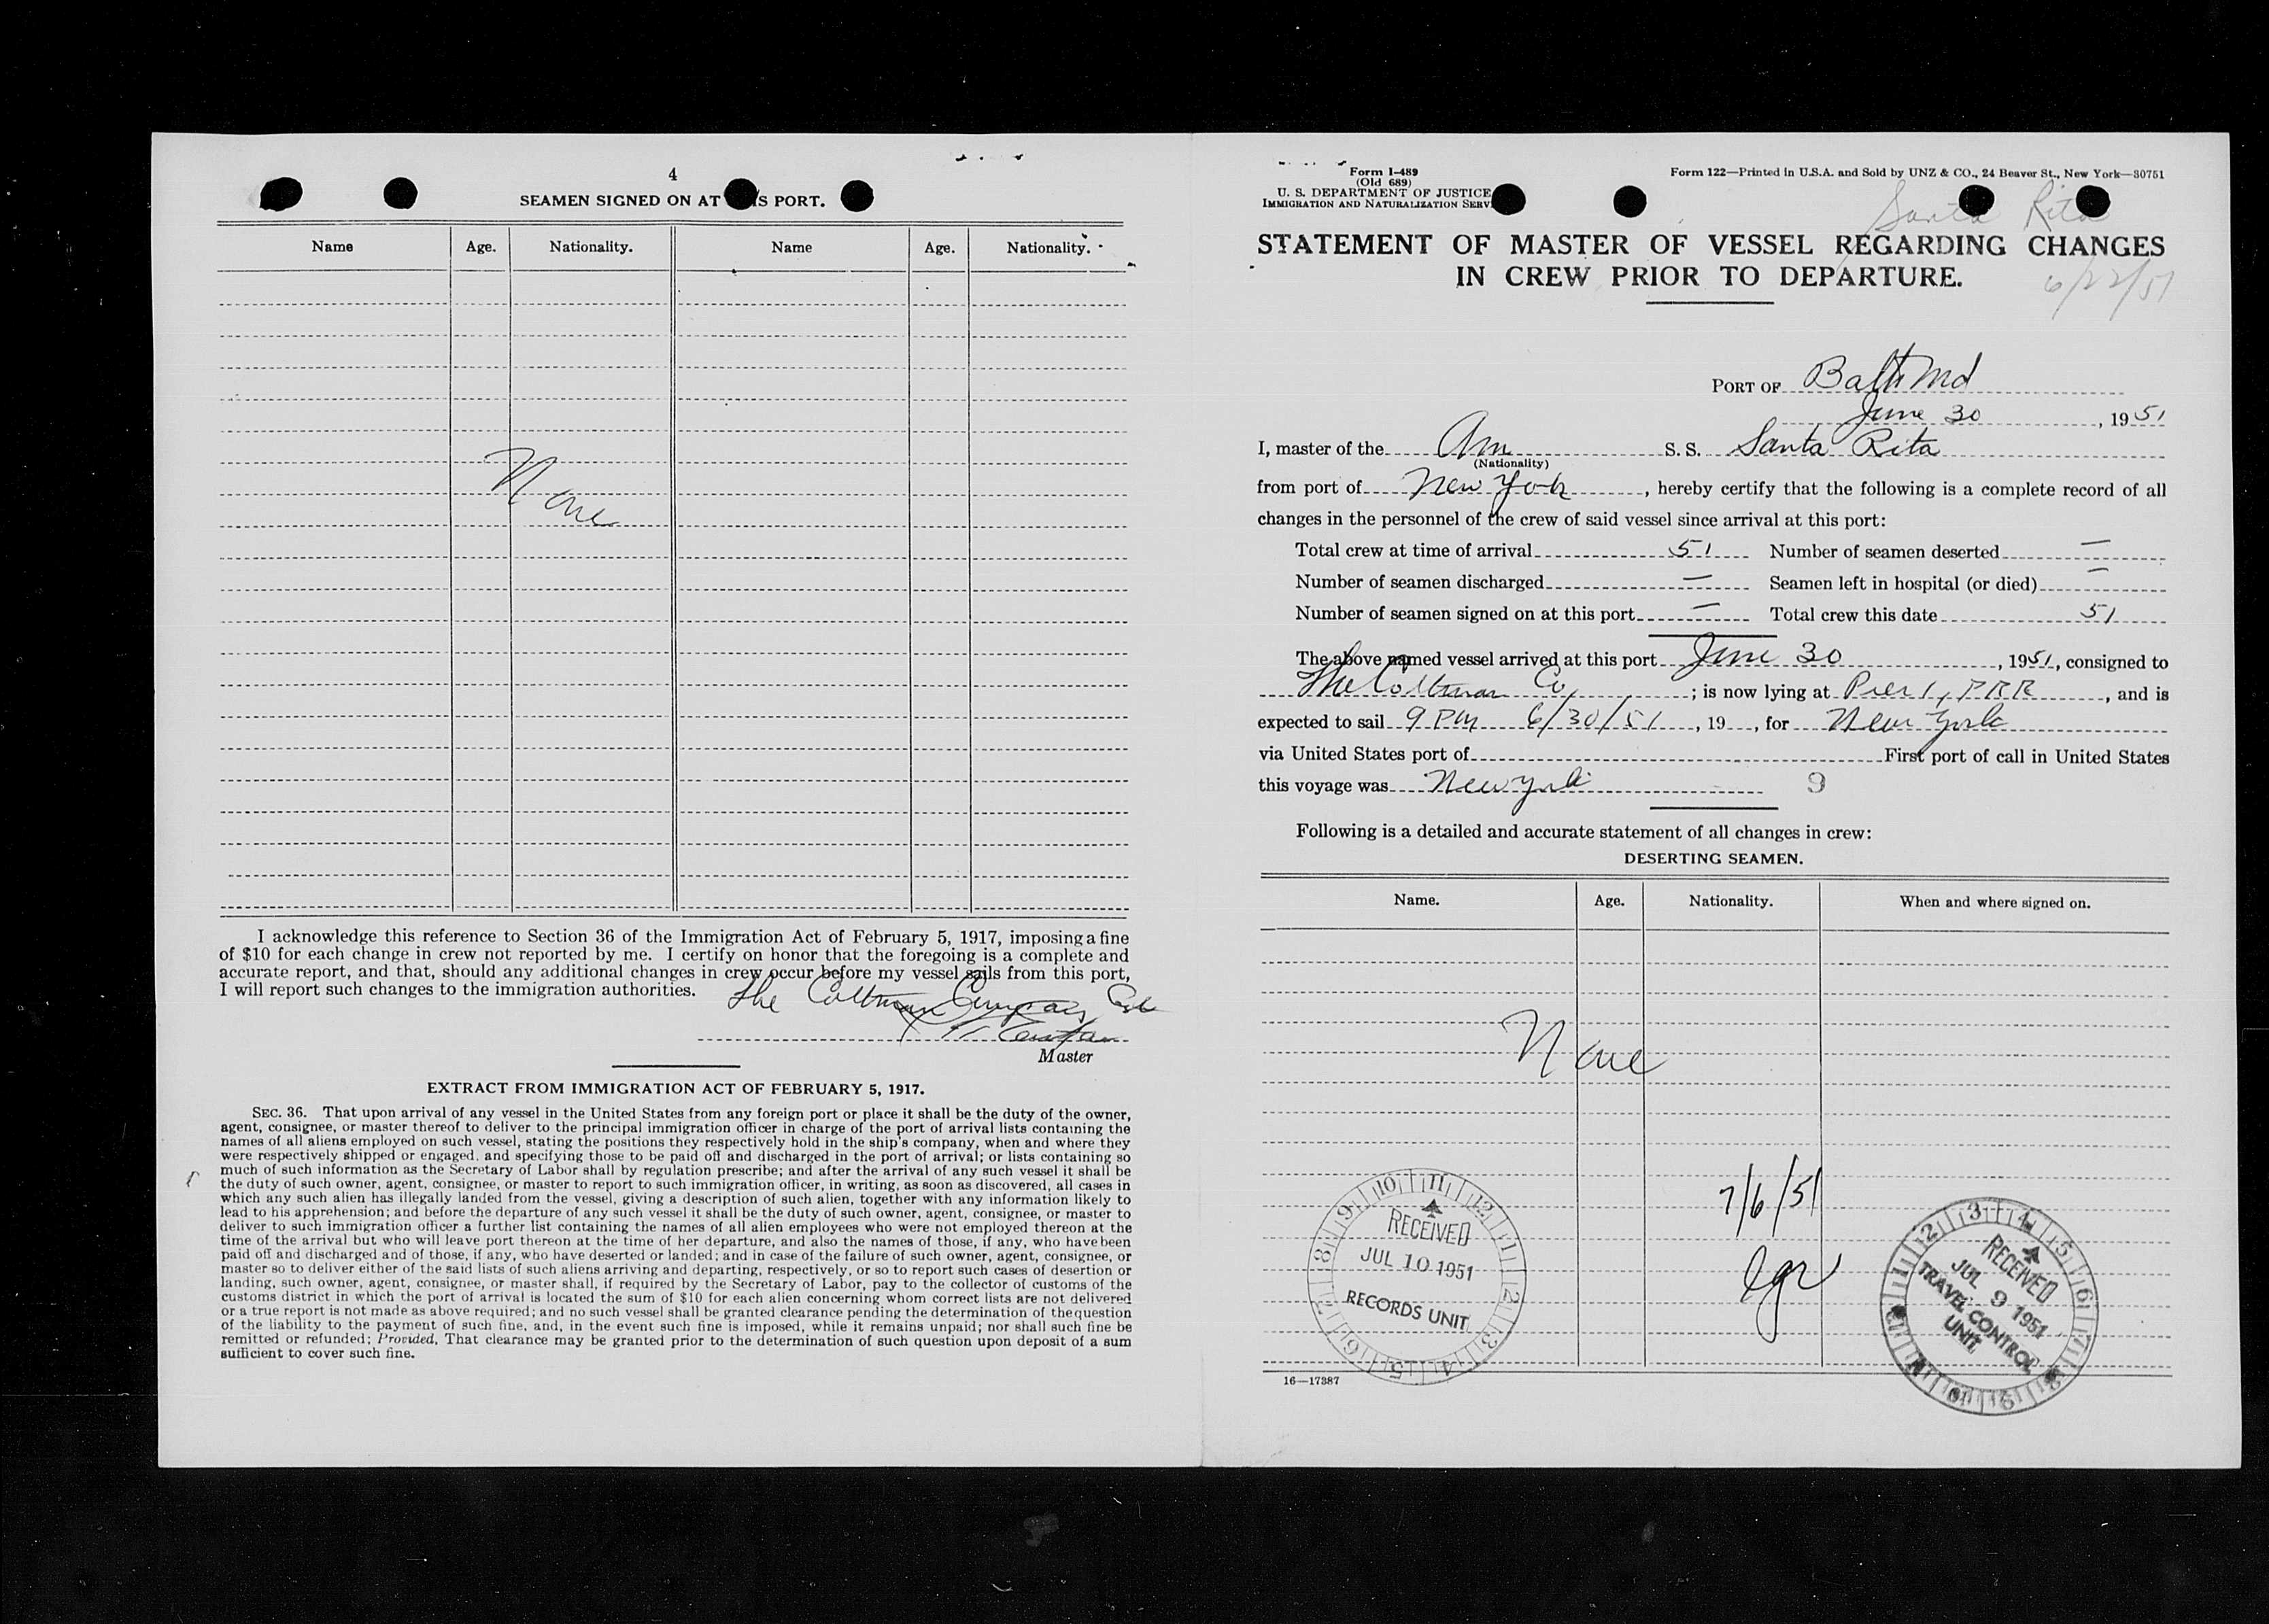 4
SEAMEN SIGNED ON AT THIS PORT.
Name Age. Nationality. Name Age. Nationality.
None
I acknowledge this reference to Section 36 of the Immigration Act of February 5, 1917, imposing a fine
of $10 for each change in crew not reported by me. I certify on honor that the foregoing is a complete and
accurate report, and that, should any additional changes in crew occur before my vessel sails from this port,
I will report such changes to the immigration authorities.
The Coltman Company
Master
EXTRACT FROM IMMIGRATION ACT OF FEBRUARY 5, 1917.
SEC. 36. That upon arrival of any vessel in the United States from any foreign port or place it shall be the duty of the owner,
agent, consignee, or master thereof to deliver to the principal immigration officer in charge of the port of arrival lists containing the
names of all aliens employed on such vessel, stating the positions they respectively hold in the ship's company, when and where they
were respectively shipped or engaged. and specifying those to be paid off and discharged in the port of arrival; or lists containing so
much of such information as the Secretary of Labor shall by regulation prescribe; and after the arrival of any such vessel it shall be
the duty of such owner, agent, consignee, or master to report to such immigration officer, in writing, as soon as discovered, all cases in
which any such alien has illegally landed from the vessel, giving a description of such alien, together with any information likely to
lead to his apprehension; and before the departure of any such vessel it shall be the duty of such owner, agent, consignee, or master to
deliver to such immigration officer a further list containing the names of all alien employees who were not employed thereon at the
time of the arrival but who will leave port thereon at the time of her departure, and also the names of those, if any, who have been
paid off and discharged and of those, if any, who have deserted or landed; and in case of the failure of such owner, agent, consignee, or
master so to deliver either of the said lists of such aliens arriving and departing, respectively, or so to report such cases of desertion or
landing, such owner, agent, consignee, or master shall, if required by the Secretary of Labor, pay to the collector of customs of the
customs district in which the port of arrival is located the sum of $10 for each alien concerning whom correct lists are not delivered
or a true report is not made as above required; and no such vessel shall be granted clearance pending the determination of the question
of the liability to the payment of such fine, and, in the event such fine is imposed, while it remains unpaid; nor shall such fine be
remitted or refunded; Provided, That clearance may be granted prior to the determination of such question upon deposit of a sum
sufficient to cover such fine.
Form I-489
(Old 689)
U. S. DEPARTMENT OF JUSTICE
IMMIGRATION AND NATURALIZATION SERV
Form 122—Printed in U.S.A. and Sold by UNZ & CO., 24 Beaver St., New York—30751
Santa Rita
STATEMENT OF MASTER OF VESSEL REGARDING CHANGES
IN CREW PRIOR TO DEPARTURE.
6/22/51
PORT OF Balto Md
June 30, 1951
I, master of the Am S. S. Santa Rita
(Nationality)
from port of New York, hereby certify that the following is a complete record of all
changes in the personnel of the crew of said vessel since arrival at this port:
Total crew at time of arrival 51 Number of seamen deserted —
Number of seamen discharged — Seamen left in hospital (or died) —
Number of seamen signed on at this port — Total crew this date 51
The above named vessel arrived at this port June 30, 1951, consigned to
The Coltman Co; is now lying at Pier 1, PRR, and is
expected to sail 9 PM 6/30/51, 19 , for New York
via United States port of First port of call in United States
this voyage was New York 9
Following is a detailed and accurate statement of all changes in crew:
DESERTING SEAMEN.
Name. Age. Nationality. When and where signed on.
None
7/6/51
RECEIVED
JUL 10 1951
RECORDS UNIT
RECEIVED
JUL 9 1951
TRAVEL CONTROL
UNIT
16—17387